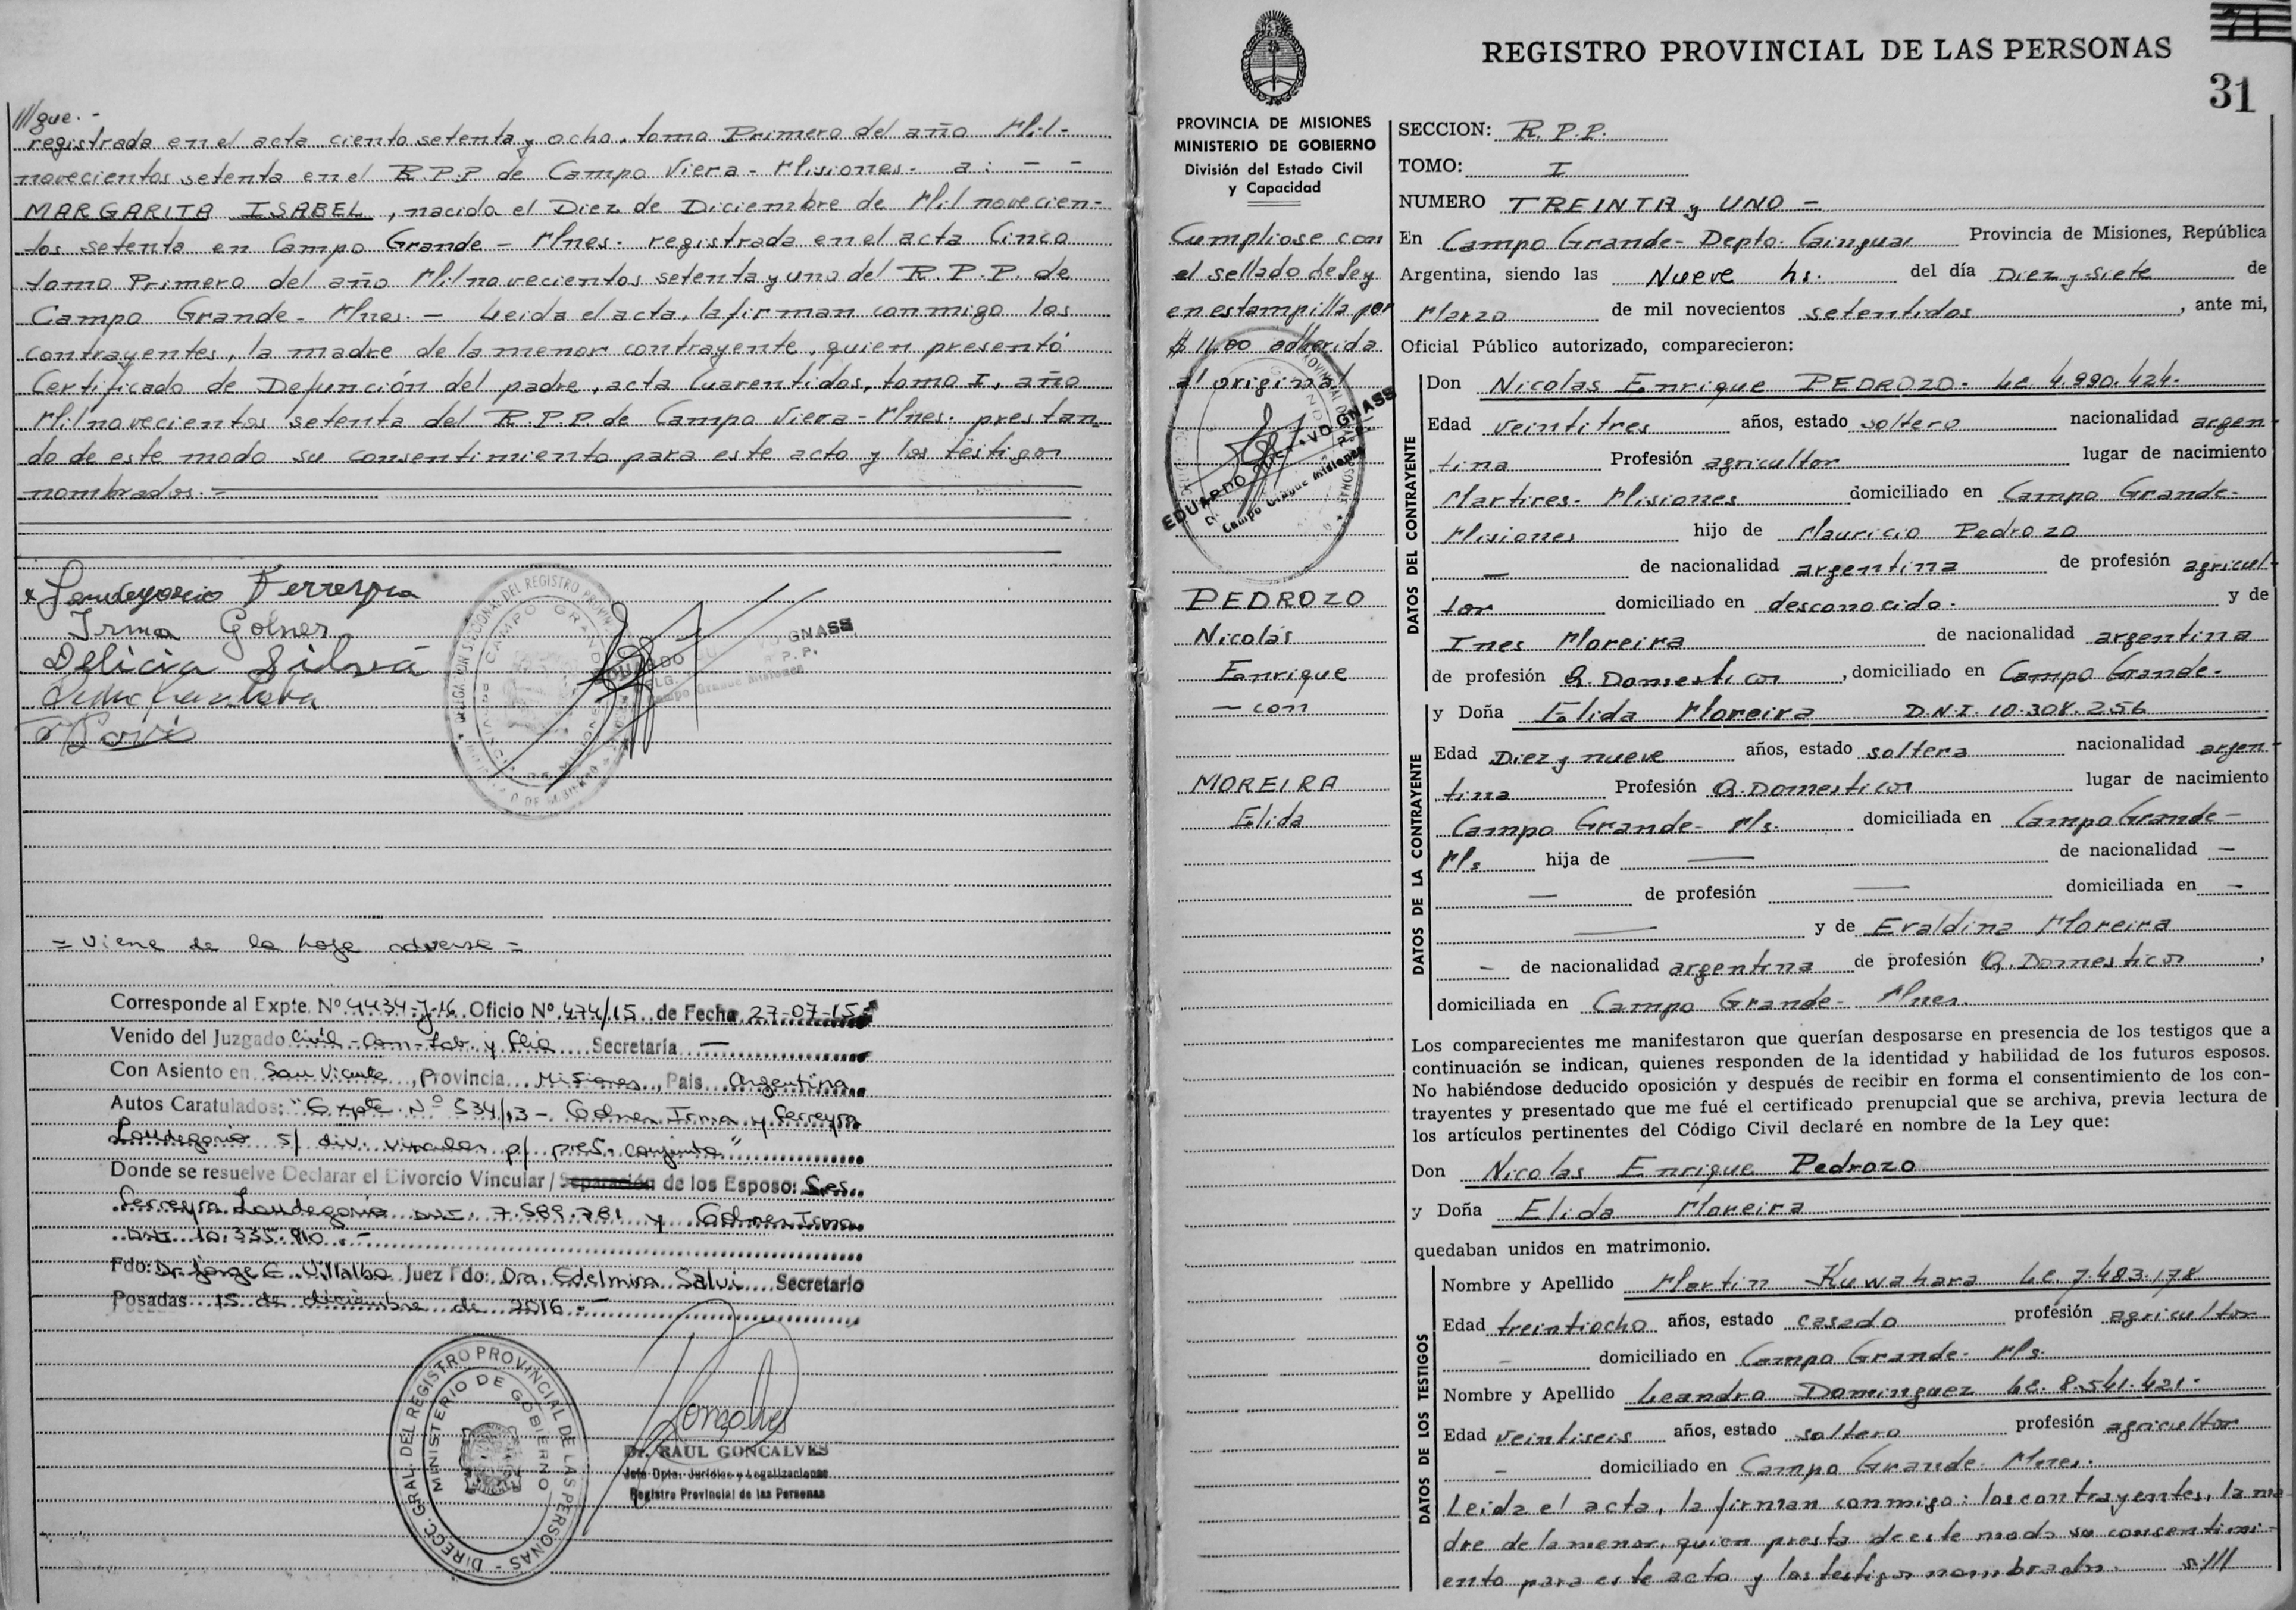 ///gue.-
registrada en el acta ciento setenta y ocho, tomo Primero del año Mil-
novecientos setenta en el R.P.P de Campo Viera - Misiones- a: - -
MARGARITA ISABEL, nacida el Diez de Diciembre de Mil novecien-
tos setenta en Campo Grande - Mnes- registrada en el acta Cinco
tomo Primero del año Mil novecientos setenta y uno del R.P.P. de
Campo Grande- Mnes. - Leida el acta, la firman conmigo los
contrayentes, la madre de la menor contrayente, quien presentó
Certificado de Defunción del padre, acta Cuarentidos, tomo I, año
Mil novecientos setenta del R.P.P. de Campo Viera - Mnes. prestan-
do de este modo su consentimiento para este acto y los testigos
nombrados.-
Irma Golner
Delicia Silva
DELEGACION SECCIONAL DEL REGISTRO PROVINCIAL
CAMPO GRANDE
EDUARDO GUSTAVO GNASS
Campo Grande Misiones
= Viene de la hoja adversa =
Corresponde al Expte. Nº 4434-J-16 Oficio Nº 474/15 de Fecha 27-07-15
Venido del Juzgado Civil-Com-Lab. y Flia Secretaría -
Con Asiento en San Vicente, Provincia Misiones, Pais Argentina
Autos Caratulados: "Expte. Nº 534/13 - Golner Irma y Ferreyra
Laudegario s/ div. vincular p/ pres. conjunta"
Donde se resuelve Declarar el Divorcio Vincular / Separación de los Esposo: Sres.
Ferreyra Laudegario DNI. 7.589.781 y Golner Irma
DNI 10.335.910.-
Fdo: Dr. Jorge E. Villalba Juez Fdo: Dra. Edelmira Salvi Secretario
Posadas 15 de diciembre de 2016.-
DIRECC. GRAL. DEL REGISTRO PROVINCIAL DE LAS PERSONAS -
MINISTERIO DE GOBIERNO
Dr. RAUL GONCALVES
Jefe Dpto. Jurídico y Legalizaciones
Registro Provincial de las Personas
REGISTRO PROVINCIAL DE LAS PERSONAS
31
PROVINCIA DE MISIONES
MINISTERIO DE GOBIERNO
División del Estado Civil
y Capacidad
Cumpliose con
el sellado de ley
en estampilla por
$ 11,00 adherida
al original
EDUARDO GUSTAVO GNASS
Campo Grande Misiones
PEDROZO
Nicolás
Enrique
- con
MOREIRA
Elida
SECCION: R.P.P.
TOMO: I
NUMERO TREINTA y UNO -
En Campo Grande- Depto. Cainguas Provincia de Misiones, República
Argentina, siendo las Nueve hs. del día Diez y siete de
Marzo de mil novecientos setentidos, ante mi,
Oficial Público autorizado, comparecieron:
DATOS DEL CONTRAYENTE
Don Nicolas Enrique PEDROZO- L.e. 4.990.424-
Edad veintitres años, estado soltero nacionalidad argen-
tina Profesión agricultor lugar de nacimiento
Martires- Misiones domiciliado en Campo Grande-
Misiones hijo de Mauricio Pedrozo
- de nacionalidad argentina de profesión agricul-
tor domiciliado en desconocido. y de
Ines Moreira de nacionalidad argentina
de profesión Q. Domesticos, domiciliado en Campo Grande-
DATOS DE LA CONTRAYENTE
y Doña Elida Moreira D.N.I. 10.308.256
Edad Diez y nueve años, estado soltera nacionalidad argen-
tina Profesión Q. Domesticos lugar de nacimiento
Campo Grande- Ms. domiciliada en Campo Grande-
Ms hija de - de nacionalidad -
- de profesión - domiciliada en -
- y de Evaldina Moreira
- de nacionalidad argentina de profesión Q. Domesticos,
domiciliada en Campo Grande- Mnes.
Los comparecientes me manifestaron que querían desposarse en presencia de los testigos que a
continuación se indican, quienes responden de la identidad y habilidad de los futuros esposos.
No habiéndose deducido oposición y después de recibir en forma el consentimiento de los con-
trayentes y presentado que me fué el certificado prenupcial que se archiva, previa lectura de
los artículos pertinentes del Código Civil declaré en nombre de la Ley que:
Don Nicolas Enrique Pedrozo
y Doña Elida Moreira
quedaban unidos en matrimonio.
DATOS DE LOS TESTIGOS
Nombre y Apellido Martin Kuwahara L.e. 7.483.178
Edad treintiocho años, estado casado profesión agricultor
- domiciliado en Campo Grande- Ms.
Nombre y Apellido Leandro Dominguez L.e. 8.541.421-
Edad veintiseis años, estado soltero profesión agricultor
- domiciliado en Campo Grande- Mnes.
Leida el acta, la firman conmigo: los contrayentes, la ma-
dre de la menor, quien presta de este modo su consentimi-
ento para este acto y los testigos nombrados. si///